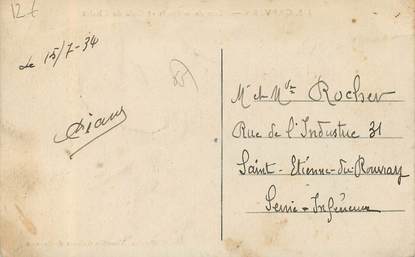 12€
le 15/7-34
M. et Mde Rocher
Rue de l'Industrie 31
Saint-Etienne-du-Rouvray
Seine-Inférieure